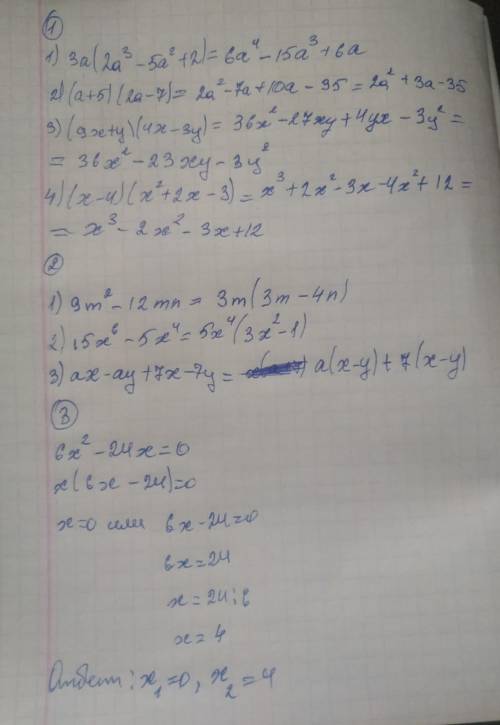 1
1) 3a(2a³-5a²+2)=6a⁴-15a³+6a
2) (a+5)(2a-7)=2a²-7a+10a-35=2a²+3a-35
3) (9x+y)(4x-3y)=36x²-27xy+4yx-3y²=
=36x²-23xy-3y²
4) (x-4)(x²+2x-3)=x³+2x²-3x-4x²+12=
=x³-2x²-3x+12
2
1) 9m²-12mn=3m(3m-4n)
2) 15x⁶-5x⁴=5x⁴(3x²-1)
3) ax-ay+7x-7y= a(x-y)+7(x-y)
3
6x²-24x=0
x(6x-24)=0
x=0 или 6x-24=0
6x=24
x=24:6
x=4
Ответ: x₁=0, x₂=4